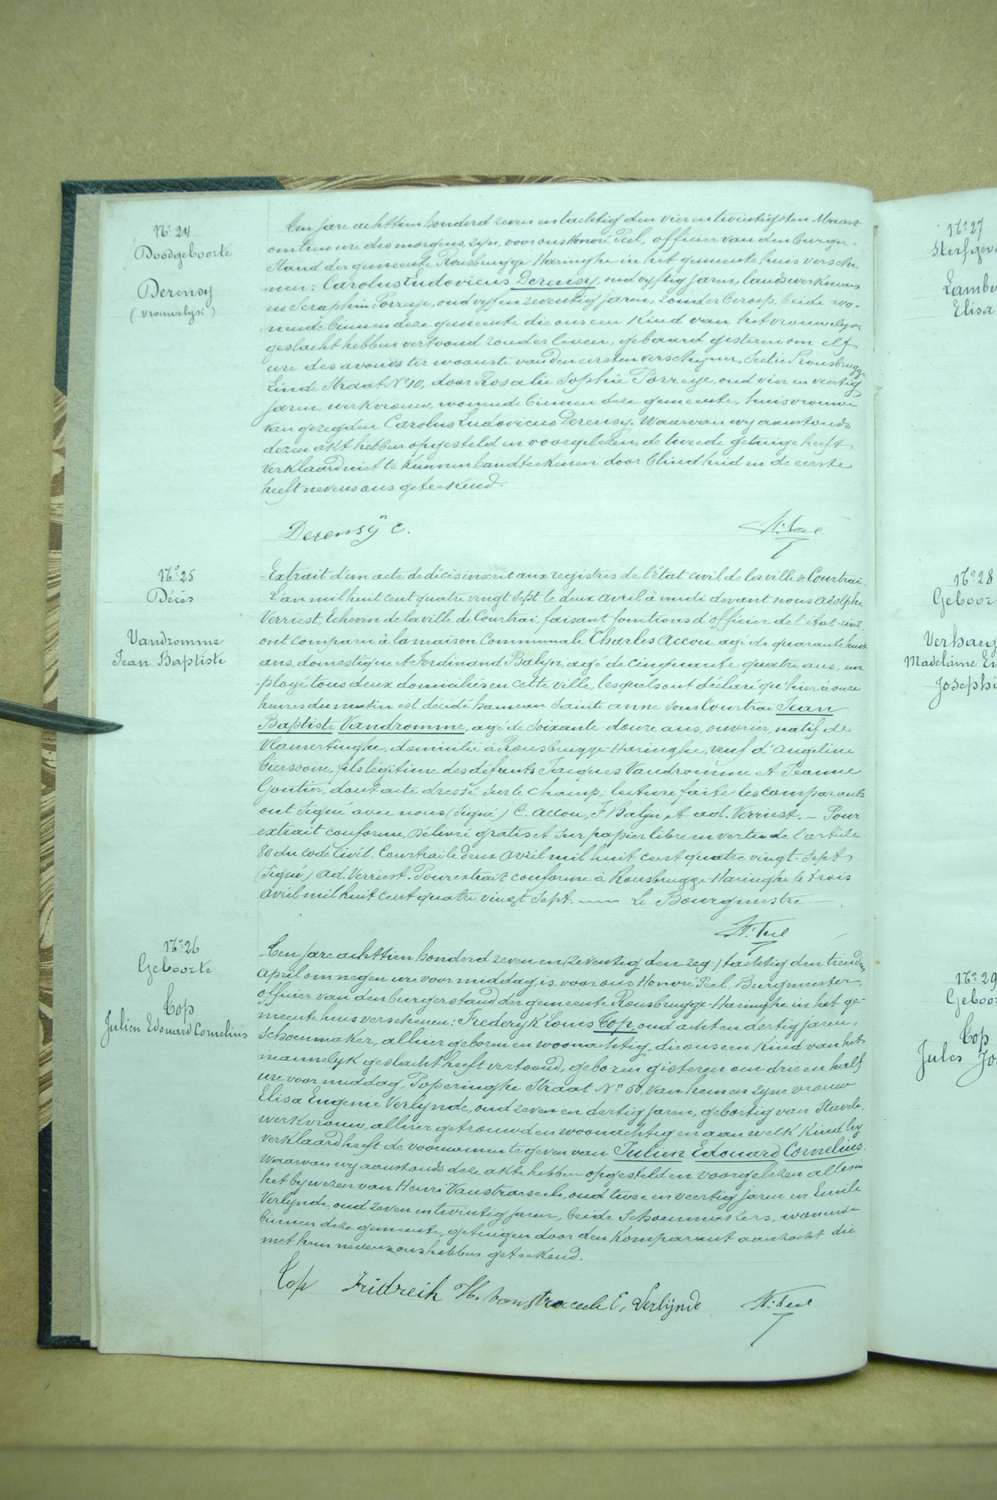 N.r 24
Doodgeboorte
Derensy
(vrouwelyk)
Ten jare achttien honderd zeven en tachtig den vier en twintigsten Maart
om tien ure des morgens zyn, voor ons Honoré Peel, officier van den burger-
stand der gemeente Rousbrugge Haringhe in het gemeente huis versche-
nen: Carolus Ludovicus Derensy, oud vyftig jaren, landswerkman
en Seraphin Porreye, oud vyf en zeventig jaren, zonder beroep, beide wo-
nende binnen deze gemeente die ons een kind van het vrouwelyk
geslacht hebben vertoond zonder leven, gebaard gisteren om elf
ure des avonds ter woonste van den eersten verschyner, Sectie Rousbrugge
Linde Straat N.o 10, door Rosalie Sophie Porreye, oud vier en veertig
jaren, werkvrouw, wonende binnen deze gemeente, huisvrouw
van gezegden Carolus Ludovicus Derensy. Waarvan wy aanstonds
dezen akt hebben opgesteld en voorgelezen, de tweede getuige heeft
verklaard niet te kunnen handteekenen door blindheid en de eerste
heeft nevens ons geteekend.
Derensÿ C.
H. Peel
N.o 25
Décès
Vandromme
Jean Baptiste
Extrait d'un acte de décès inscrit aux registres de l'état civil de la ville de Courtrai.
L'an mil huit cent quatre vingt sept le deux avril à midi devant nous Adolphe
Verriest, Echevin de la ville de Courtrai, faisant fonctions d'officier de l'état civil
ont comparu à la maison Communale Charles Accou agé de quarante huit
ans, domestique et Ferdinand Balyn, agé de cinquante quatre ans, em-
ployé tous deux domiciliés en cette ville, lesquels ont déclaré qu'hier à onze
heures du matin est décédé hameau Sainte anne sous Courtrai Jean
Baptiste Vandromme, agé de soixante-douze ans, ouvrier, natif de
Vlamertinghe, domicilié à Rousbrugge-Haringhe, veuf d'Angeline
fils légitime des défunts Jacques Vandromme et Jeanne
dont acte dressé sur le champ; lecture faite les comparants
ont signé avec nous (signé) C. Accou, F. Balyn et ad. Verriest. — Pour
extrait conforme délivré gratis et sur papier libre en vertu de l'article
80 du code Civil. Courtrai le deux Avril mil huit cent quatre vingt-sept
(signé) Ad. Verriest. Pour extrait conforme à Rousbrugge-Haringhe le trois
avril mil huit cent quatre vingt sept. — Le Bourgmestre
H. Peel
N.r 26
Geboorte
Cop
Julien Edouard Cornelius
Ten jare achttien honderd zeven en (zeventig den zeg) tachtig den tienden
April om negen ure voormiddag is voor ons Honoré Peel, Burgmeester,
officier van den burgerstand der gemeente Rousbrugge-Haringhe in het ge-
meentehuis verschenen: Frederyk Louis Cop, oud acht en dertig jaren,
Schoenmaker, alhier geboren en woonachtig, die ons een kind van het
mannelyk geslacht heeft vertoond, geboren gisteren om drie en half
ure voor middag, Poperinghe Straat N.o 60, van hem en zyne vrouw
Elisa Eugenie Verlynde, oud zeven en dertig jaren, geboortig van Stavele,
werkvrouw, alhier getrouwd en woonachtig en aan welk kind hy
verklaard heeft de voornamen te geven van Julien Edouard Cornelius.
Waarvan wy aanstonds deze akte hebben opgesteld en voorgelezen alles in
het bywezen van Henri Vanstraceele, oud twee en veertig jaren en Emile
Verlynde, oud zeven en twintig jaren, beide Schoenmakers, wonende
binnen deze gemeente, getuigen door den komparant aanzocht die
met hem nevens ons hebben geteekend.
Cop Fridreik H. Vanstraceele E. Verlijnde H. Peel
N.r 27
Lambe
Elisa
N.r 28
Geboor
Verhaeg
Madelaine Em
Josephi
N.r 29
Geboor
Cop
Jules Jo